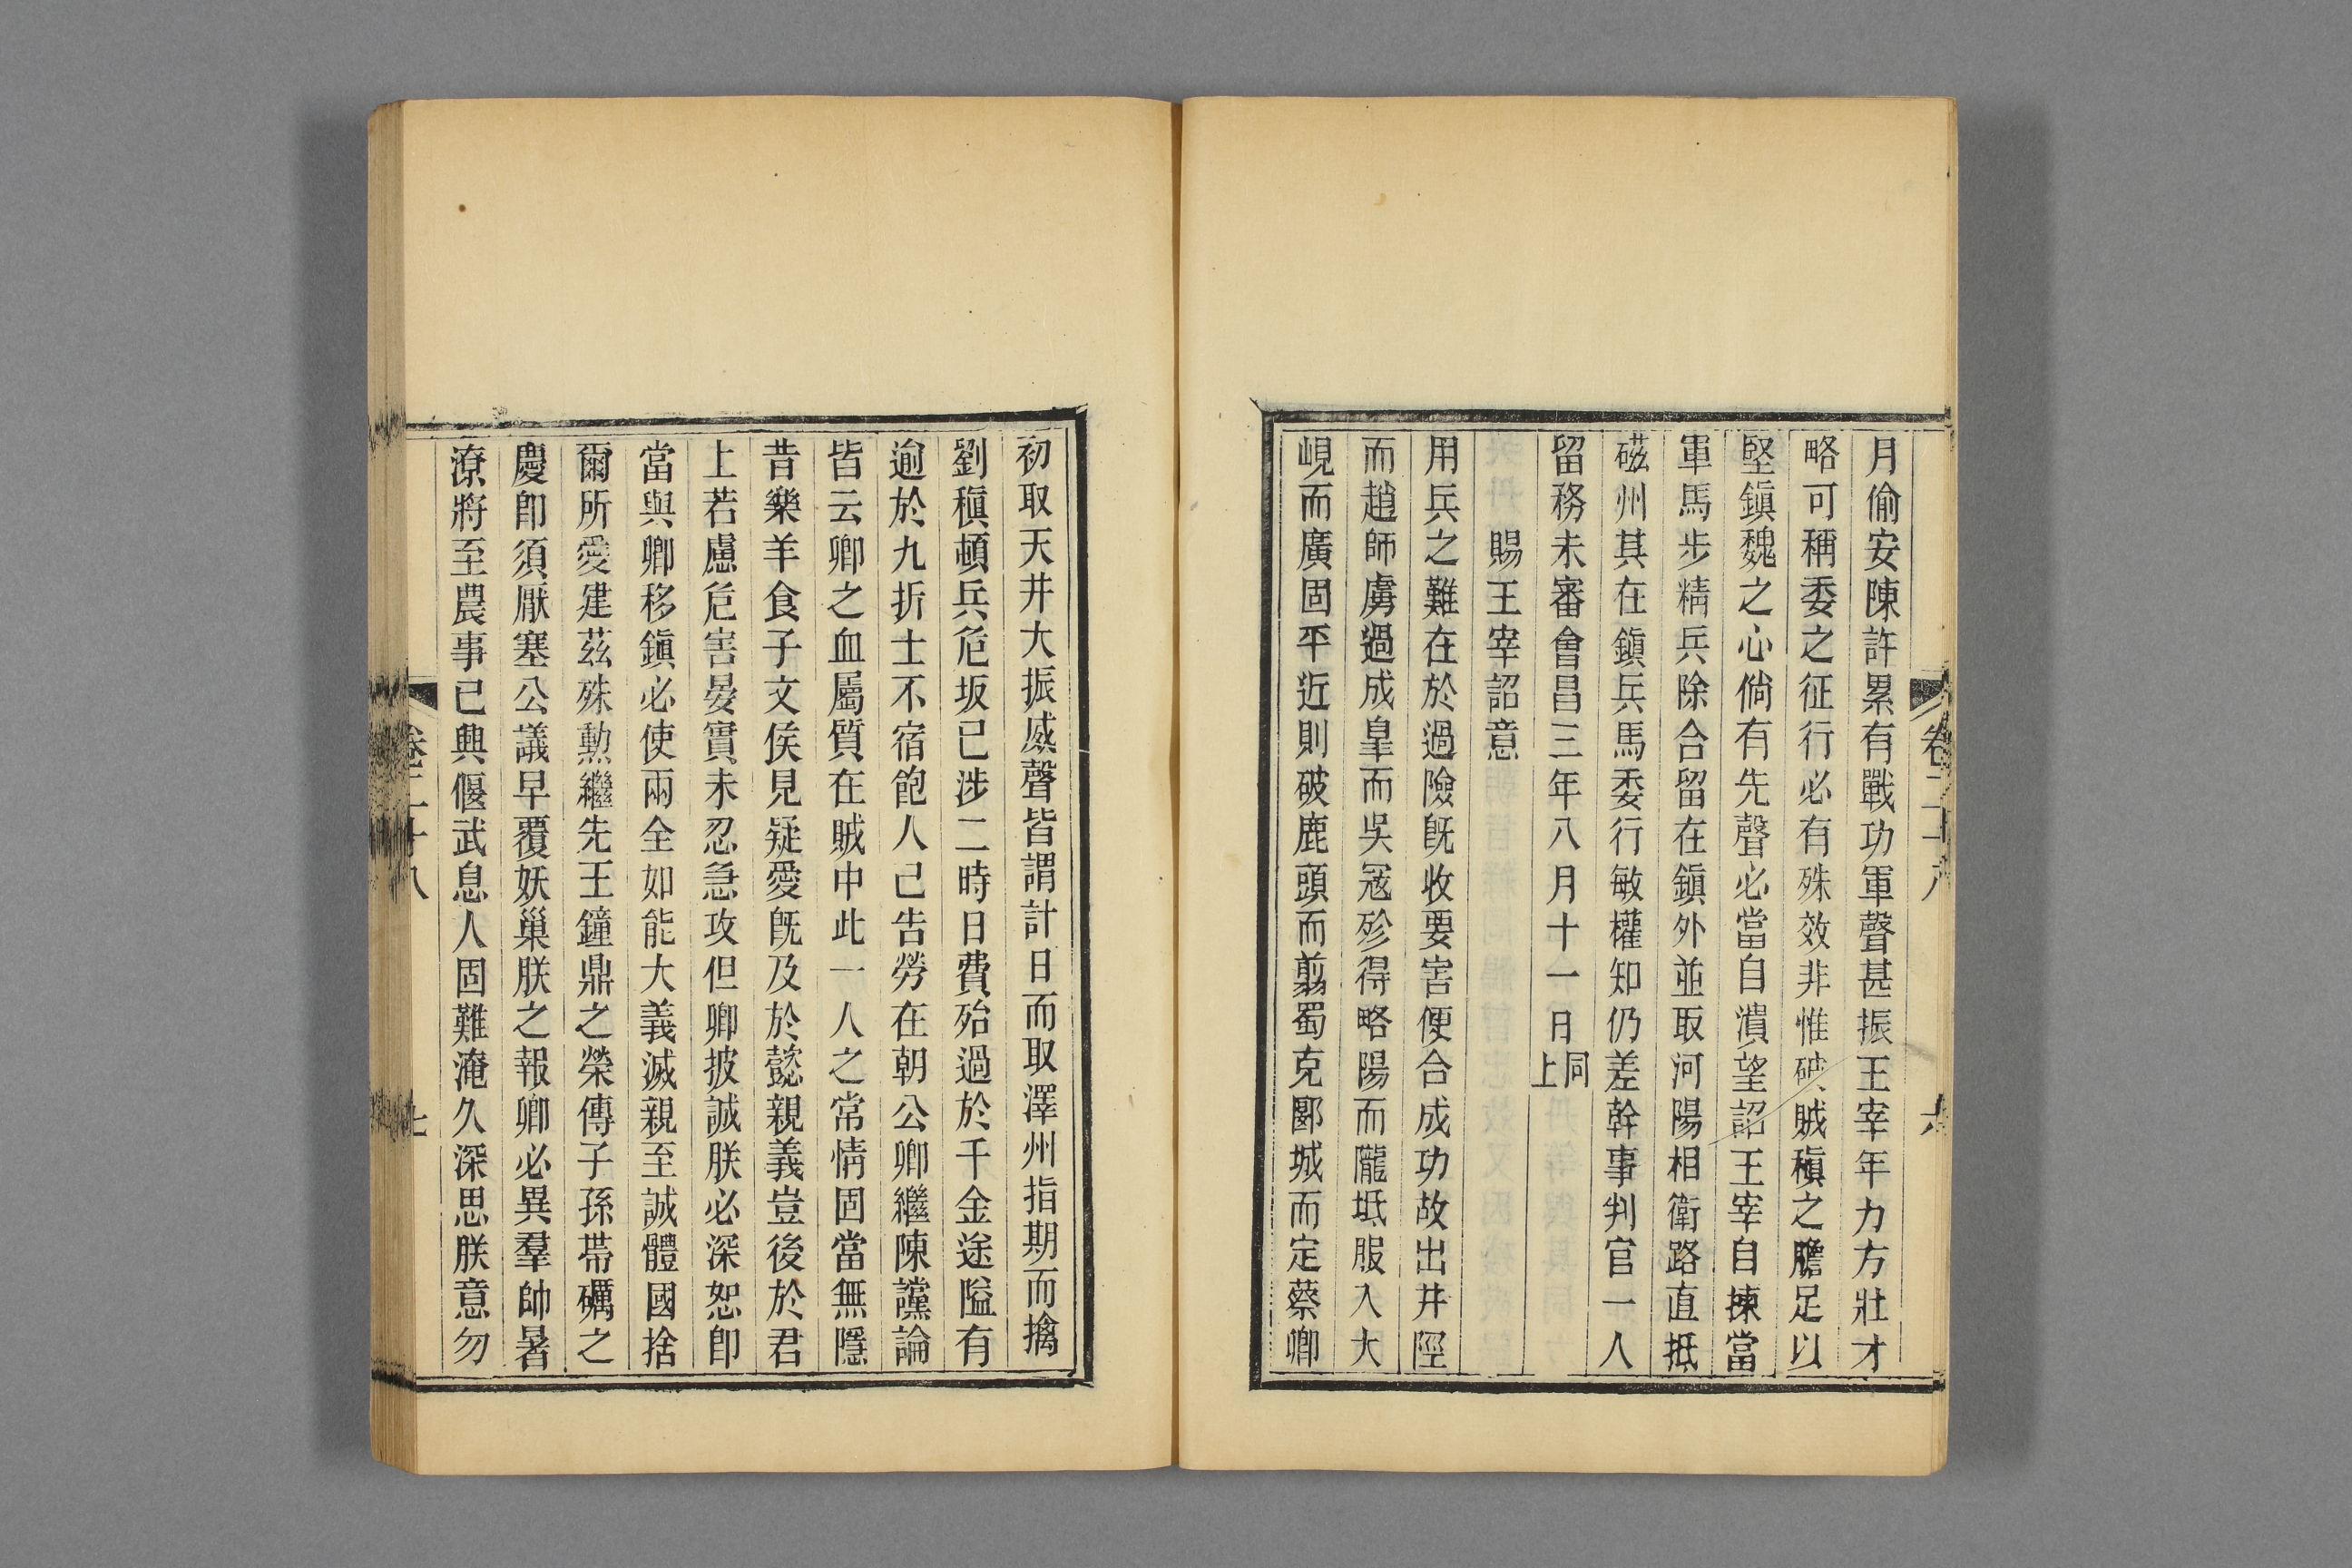 月偷安陳許累有戰功軍聲甚振王宰年力方壯才
略可稱委之征行必有殊效非惟破賊稹之膽足以
堅鎭魏之心倘有先聲必當自潰望詔王宰自揀當
軍馬步精兵除合留在鎭外並取河陽相衛路直抵
磁州其在鎭兵馬委行敏權知仍差幹事判官一人
留務未審會昌三年八月十一日同上
賜王宰詔意
用兵之難在於過險旣收要害便合成功故出井陘
而趙師虜過成皐而吳冦殄得略陽而隴坻服入大
峴而廣固平近則破鹿頭而翦蜀克郾城而定蔡卿
卷二十八
六
初取天井大振威聲皆謂計日而取澤州指期而擒
劉稹頓兵危坂已涉二時日費殆過於千金途隘有
逾於九折士不宿飽人已告勞在朝公卿繼陳讜論
皆云卿之血屬質在賊中此一人之常情固當無隱
昔樂羊食子文侯見疑愛旣及於懿親義豈後於君
上若慮危害晏實未忍急攻但卿披誠朕必深恕卽
當與卿移鎭必使兩全如能大義滅親至誠體國捨
爾所愛建茲殊勲繼先王鐘鼎之榮傳子孫帶礪之
慶卽須厭塞公議早覆妖巢朕之報卿必異羣帥暑
潦將至農事已興偃武息人固難淹久深思朕意勿
卷二十八
七